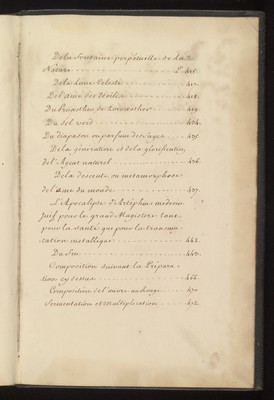 De la Fontaine perpetuelle de la
Nature P. 415.
De la Lune Celeste 417.
De l'ame des Etoiles 418.
Du Proasthes de Zoroasther 419.
Du sel verd 424.
Du diapason ou parfum des Sages 425.
De la géneration et de la glorification
de l'Agent naturel 426.
De la descente ou metamorphose
de l'ame du monde 427.
L'Apocalipse d'Artéphius médecin
Juif pour le grand Magistere tant
pour la santé que pour la transmu
tation metallique 442.
Du Feu 443.
Composition suivant la Prépara
tion cy dessus 466.
Composition de l'œuvre au Rouge 470
Fermentation et Multiplication 472.